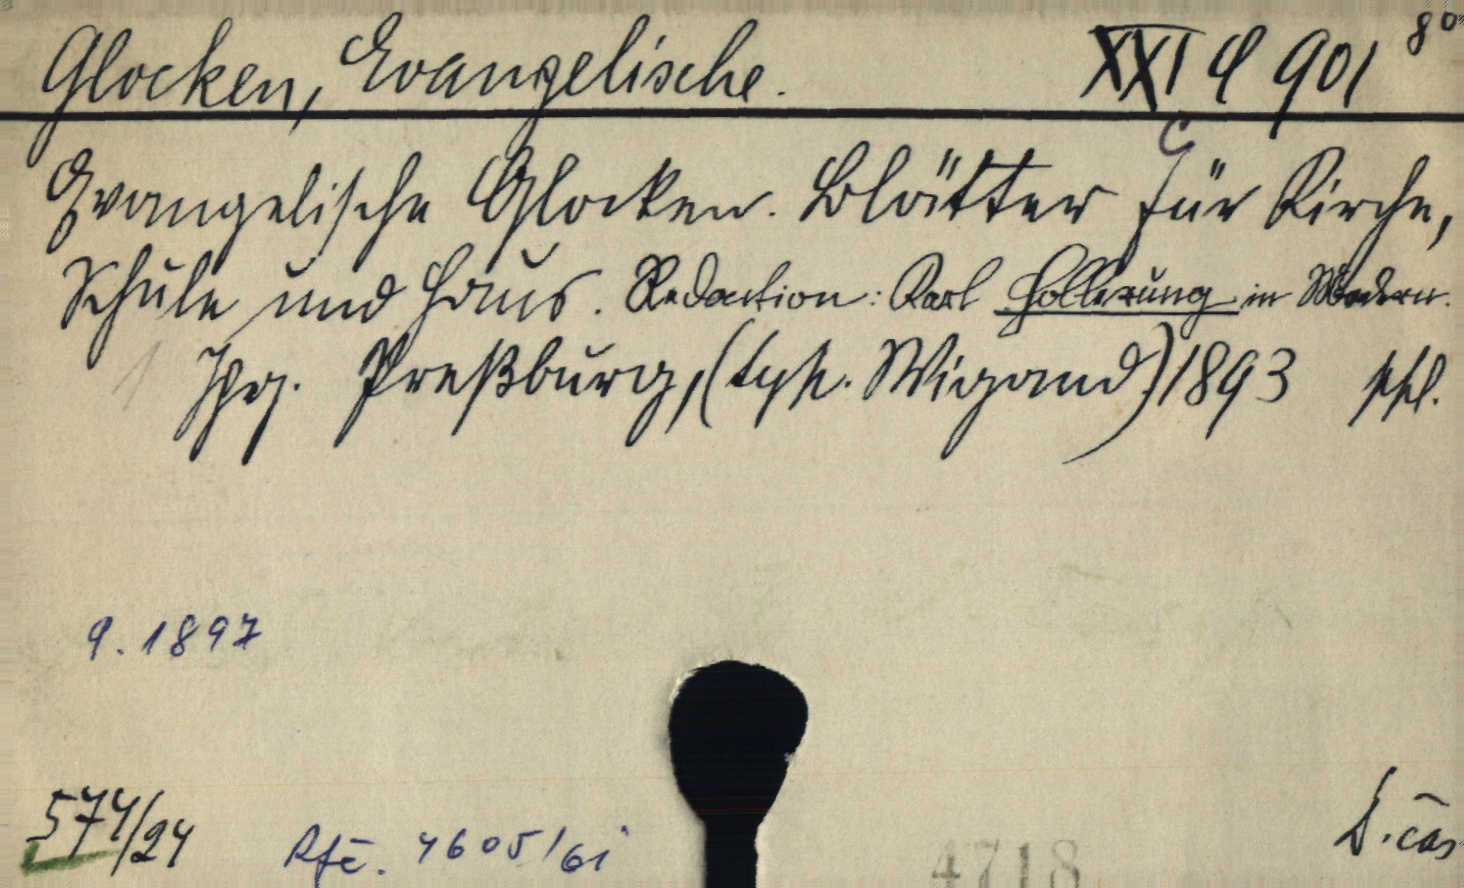 Glocken, Evangelische. XXI C 901 8°
Evangelische Glocken. Blätter für Kirche,
Schule und Haus. Redaction: Karl Hollerung in Modern.
Jhrg. Preßburg, (typ. Wigand) 1893
9. 1897
574/24 4605/61 4718